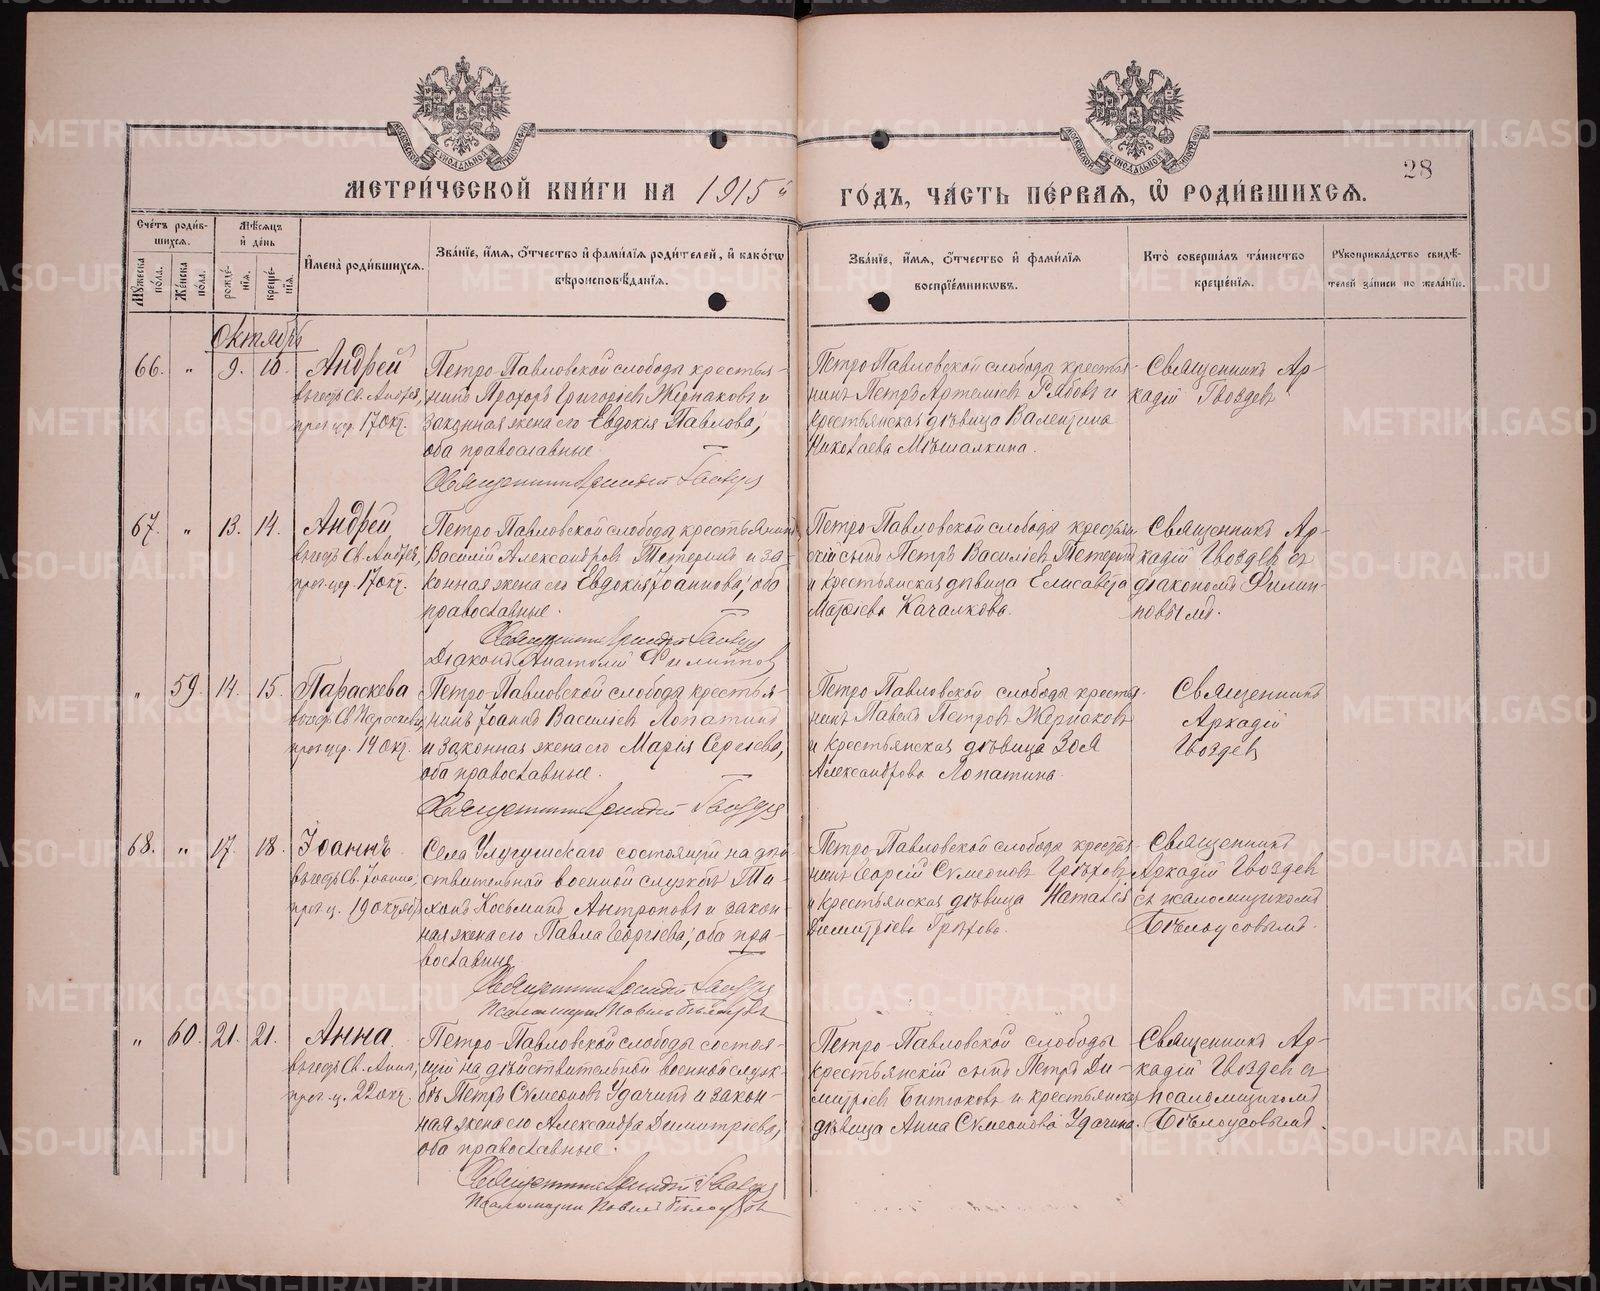 МЕТРИ́ЧЕСКОЙ КНИ́ГИ НА 1915й
ГО́ДЪ, ЧА́СТЬ ПЕ́РВАЯ, Ѽ РОДИ́ВШИХСЯ.
28
Сче́тъ роди́в-
шихся.
Мѣ́сяцъ
и҆ де́нь
Мꙋ́жеска по́ла.
Же́нска по́ла.
рожде́-
нїя.
креще́-
нїя.
И҆мена̀ роди́вшихся.
Зва́нїе, и҆́мя, ѻ҆́тчество и҆ фами́лїя роди́телей, и҆ како́гѡ
вѣроисповѣ́данїя.
Зва́нїе, и҆́мя, ѻ҆́тчество и҆ фами́лїя
воспрїе́мникѡвъ.
Кто̀ соверша́лъ та́инство
креще́нїя.
Рꙋкоприкла́дство свидѣ́-
телей за́писи по жела́нїю.
Октябрь
66. „ 9. 10. Андрей
въ честь Св. Андрея,
17 окт.
Петро-Павловской слободы крестья-
нинъ Прохоръ Григоріевъ Жернаковъ и
законная жена его Евдокія Павлова,
оба православные.
Священникъ Аркадій Гвоздевъ
Петро-Павловской слободы крестья-
нинъ Петръ Артеміевъ Рябовъ и
крестьянская дѣвица Валентина
Николаева Мѣшалкина.
Священникъ Ар-
кадій Гвоздевъ
67. „ 13. 14. Андрей
въ честь Св. Андрея,
17 окт.
Петро-Павловской слободы крестьянинъ
Василій Александровъ Тетеринъ и за-
конная жена его Евдокія Іоаннова, оба
православные.
Священникъ Аркадій Гвоздевъ
Діаконъ Анатолій Филипповъ
Петро-Павловской слободы крестьян-
скій сынъ Петръ Василіевъ Тетеринъ
и крестьянская дѣвица Елисавета
Матѳіева Качалкова.
Священникъ Ар-
кадій Гвоздевъ съ
діакономъ Филип-
повымъ.
„ 59. 14. 15. Параскева
въ честь Св. Параскевы,
14 окт.
Петро-Павловской слободы крестья-
нинъ Іоаннъ Василіевъ Лопатинъ
и законная жена его Марія Сергіева,
оба православные.
Священникъ Аркадій Гвоздевъ
Петро-Павловской слободы крестья-
нинъ Павелъ Петровъ Жернаковъ
и крестьянская дѣвица Зоя
Александрова Лопатина.
Священникъ
Аркадій
Гвоздевъ
68. „ 17. 18. Іоаннъ
въ честь Св. Іоанна,
19 октября
Села состоящій на дѣй-
ствительной военной службѣ Ти-
хонъ Косьминъ Антроповъ и закон-
ная жена его Павла Георгіева, оба пра-
вославные
Священникъ Аркадій Гвоздевъ
Псаломщикъ Павелъ Бѣлоусовъ
Петро-Павловской слободы крестья-
нинъ Георгій Сѵмеоновъ Грѣховъ
и крестьянская дѣвица Наталія
Димитріева Грѣхова.
Священникъ
Аркадій Гвоздевъ
съ псаломщикомъ
Бѣлоусовымъ.
„ 60. 21. 21. Анна
въ честь Св. Анны,
22 окт.
Петро-Павловской слободы состоя-
щій на дѣйствительной военной служ-
бѣ Петръ Сѵмеоновъ Удачинъ и закон-
ная жена его Александра Димитріева,
оба православные.
Священникъ Аркадій Гвоздевъ
Псаломщикъ Павелъ Бѣлоусовъ
Петро-Павловской слободы
крестьянскій сынъ Петръ Ди-
митріевъ Битюковъ и крестьянская
дѣвица Анна Сѵмеонова Удачина.
Священникъ Ар-
кадій Гвоздевъ съ
псаломщикомъ
Бѣлоусовымъ.
METRIKI.GASO-URAL.RU